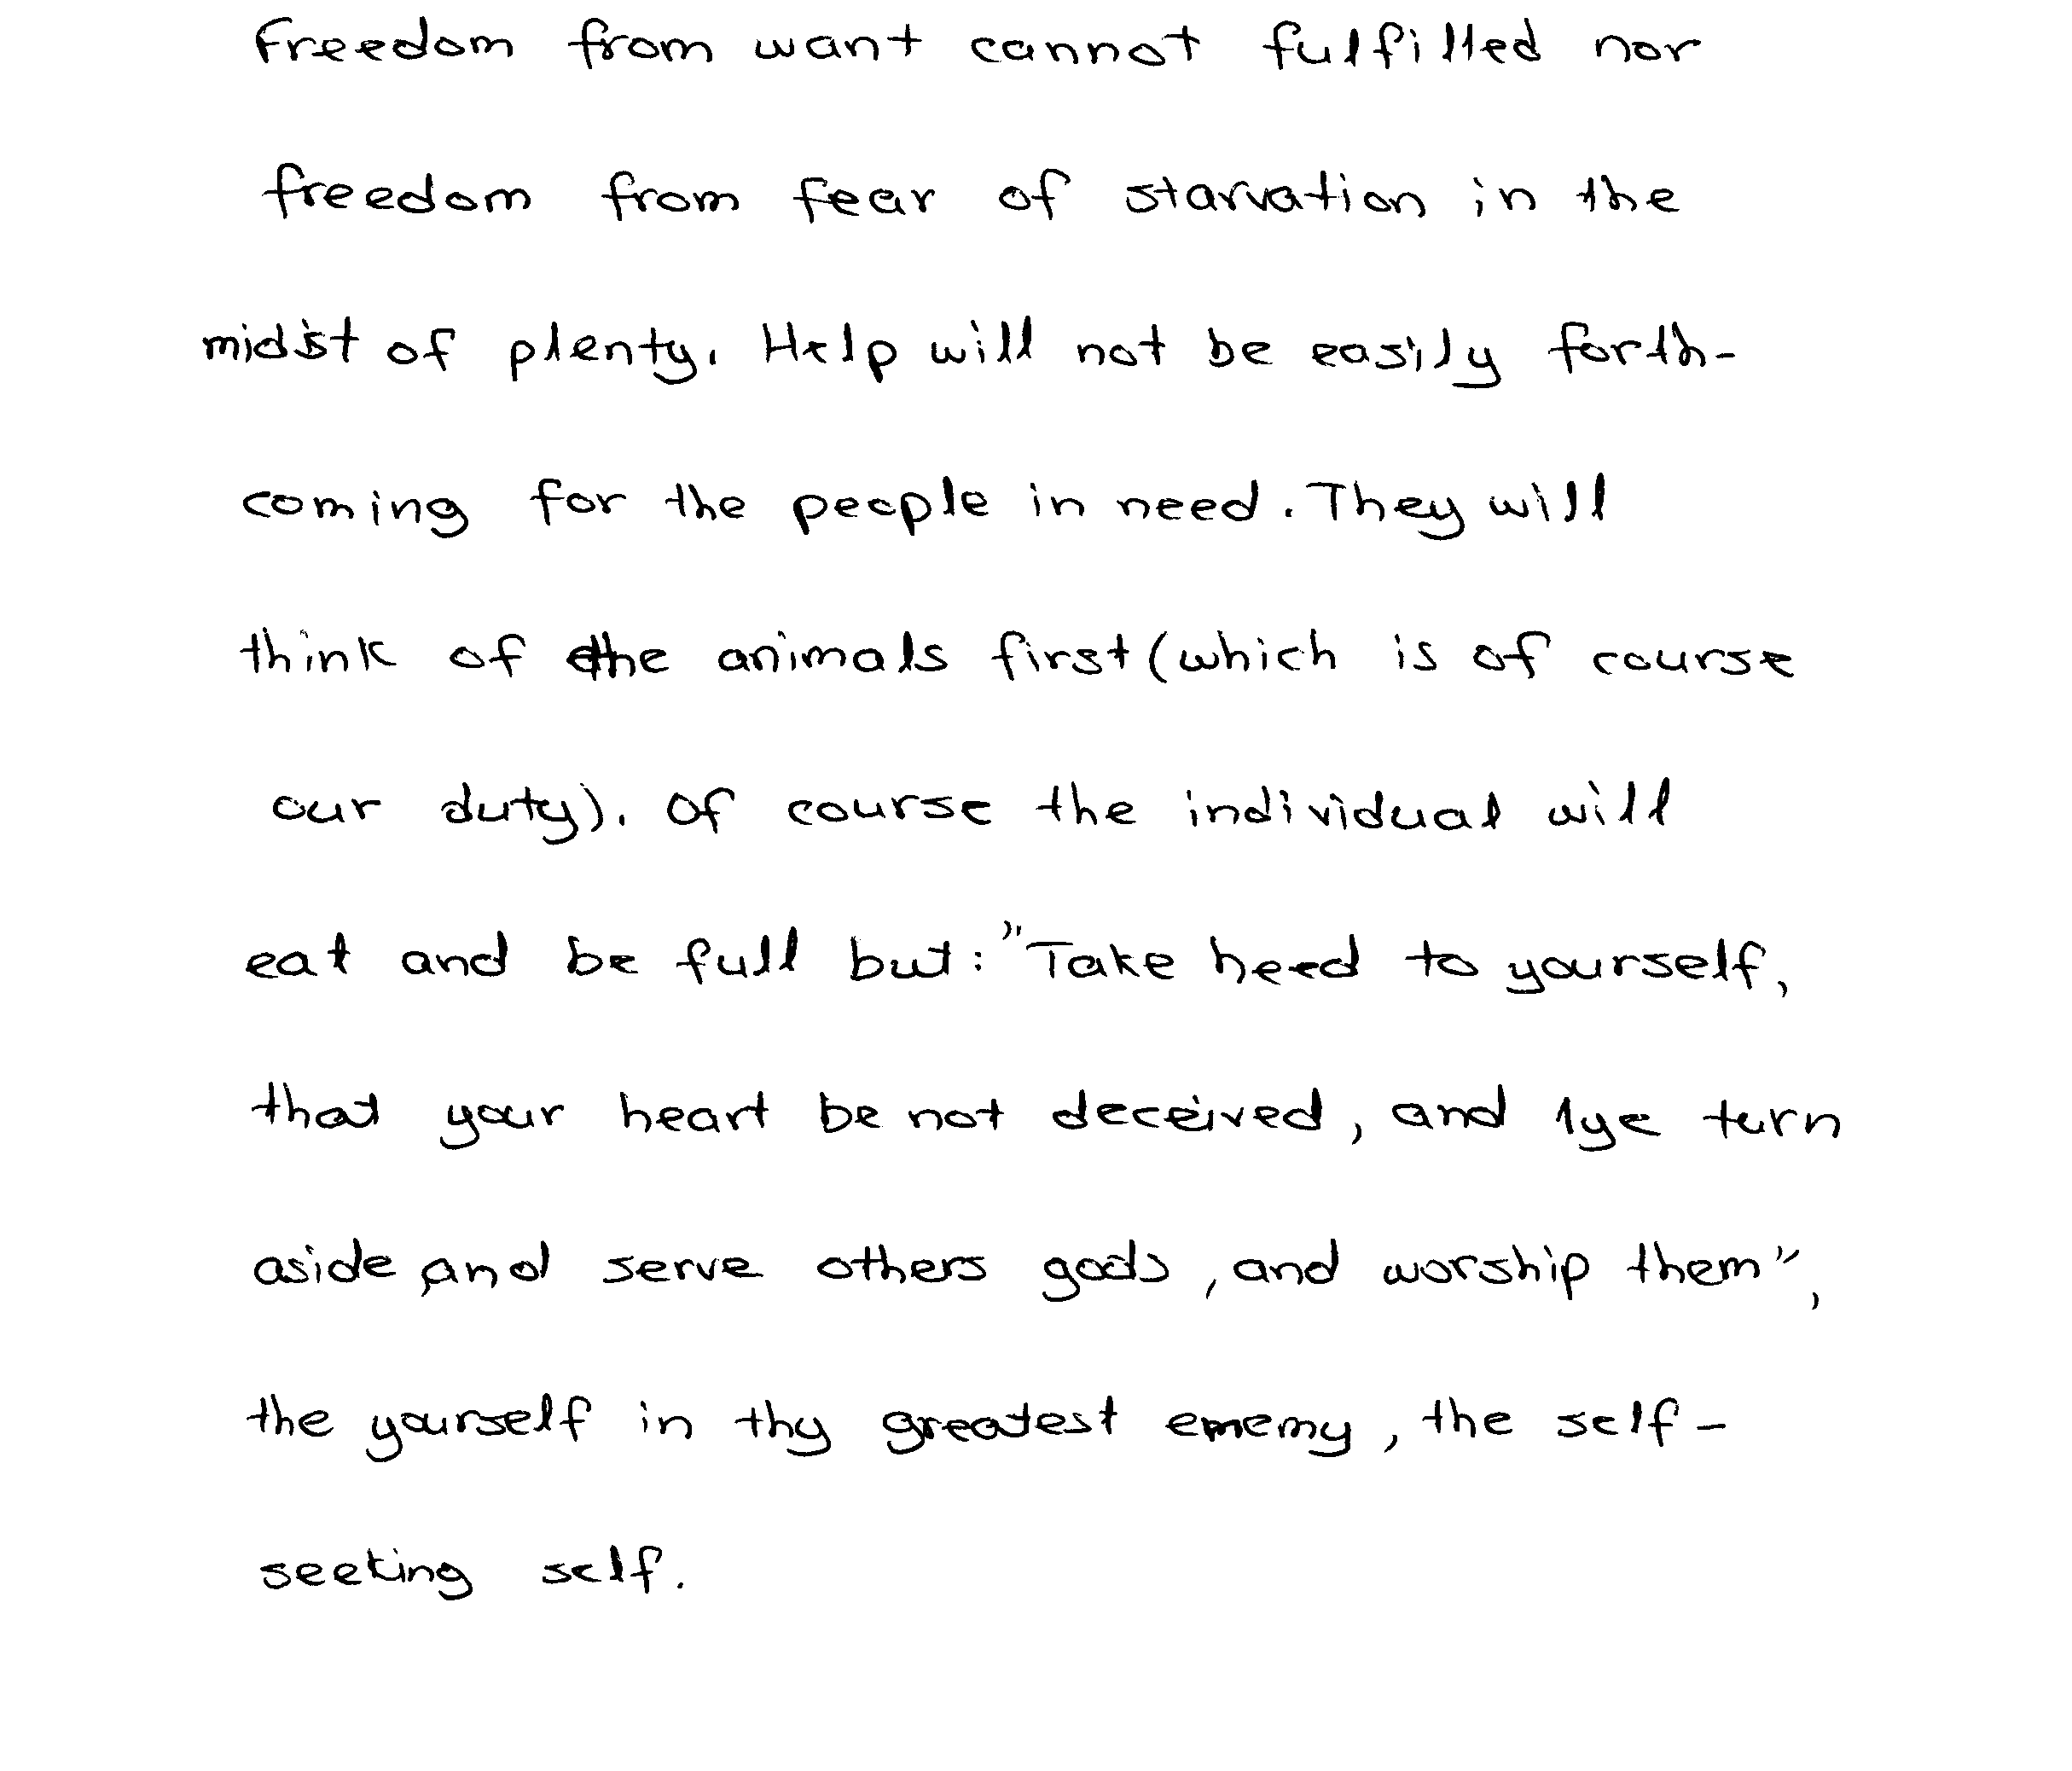 Freedom from want cannot fulfilled nor
freedom from fear of starvation in the
midst of plenty. Help will not be easily forth-
coming for the people in need. They will
think of the animals first (which is of course
our duty). Of course the individual will
eat and be full but: "Take heed to yourself,
that your heart be not deceived, and 1ye turn
aside and serve others gods, and worship them",
the yourself in thy greatest ememy, the self-
seeking self.